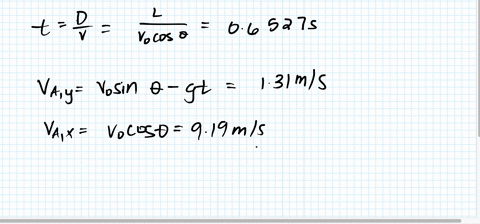 t = D/V = L/(V₀cos θ) = 0.6527s
V_A,y = V₀sin θ - gt = 1.31 m/s
V_A,x = V₀cosθ = 9.19 m/s